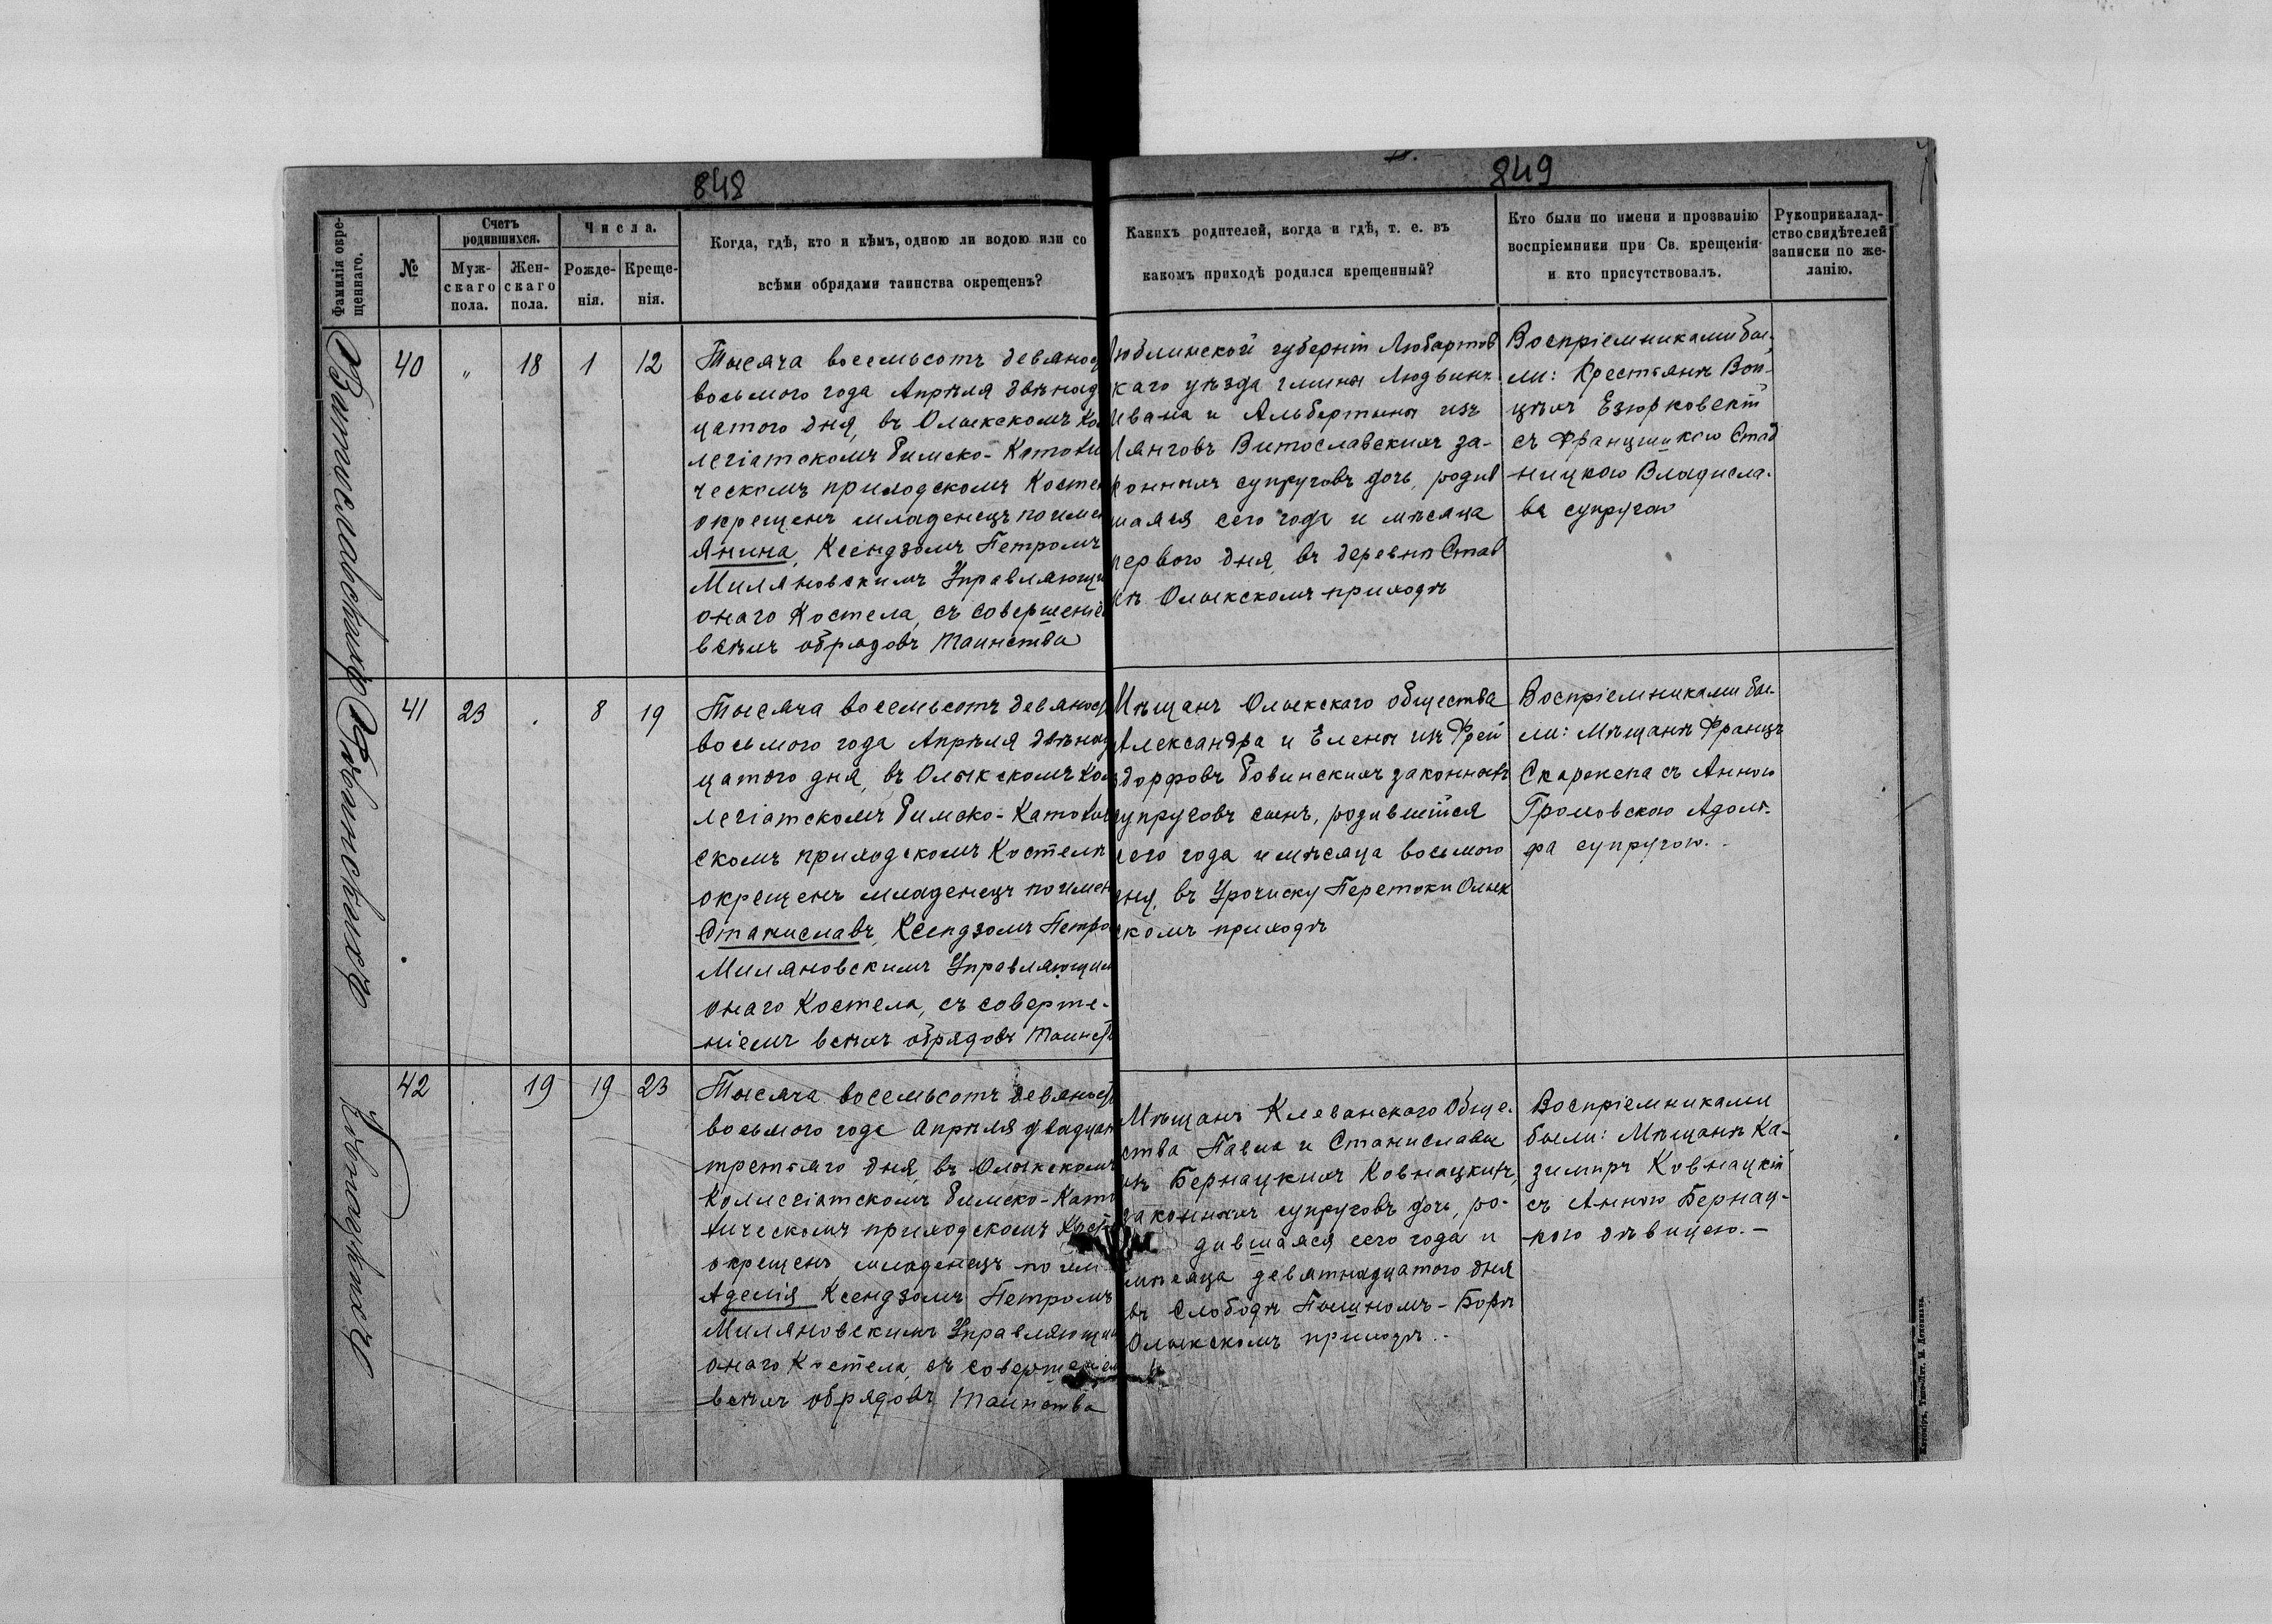 848
849
Фамилія окре-
щеннаго.
№
Счетъ
родившихся.
Муж-
скаго
пола.
Жен-
скаго
пола.
Числа.
Рожде-
нія.
Креще-
нія.
Когда, гдѣ, кто и кѣмъ, одною ли водою или со
всѣми обрядами таинства окрещенъ?
Какихъ родителей, когда и гдѣ, т. е. въ
какомъ приходѣ родился крещенный?
Кто были по имени и прозванію
воспріемники при Св. крещеніи
и кто присутствовалъ.
Рукоприкалад-
ство свидѣтелей
записки по же-
ланію.
Витославскихъ
40 „ 18 1 12
Тысяча восемьсотъ девяност
восьмого года Апрѣля двѣнад
цатого дня, въ Олыкскомъ Кол
легіатскомъ Римско-Католи
ческомъ приходскомъ Костел
окрещенъ младенецъ по имен
Янина, Ксендзомъ Петромъ
Миляновскимъ Управляющи
онаго Костела, съ совершеніе
всѣхъ обрядовъ Таинства
Люблинской губерніи Любартов
каго уѣзда гмины Людвинъ
Ивана и Альбертины изъ
Лянговъ Витославскихъ за-
конныхъ супруговъ дочь, родив
шаяся сего года и мѣсяца
первого дня, въ деревнѣ Став
кѣ Олыкскомъ приходѣ
Воспріемниками бы-
ли: Крестьянѣ Вой-
цѣхъ Езюрковскій
съ Францишкою Стад
ницкою Владисла-
ва супругою
Ровинскихъ
41 23 . 8 19
Тысяча восемьсотъ девяност
восьмого года Апрѣля двѣнад
цатого дня, въ Олыкскомъ Кол
легіатскомъ Римско-Католич
скомъ приходскомъ Костелѣ
окрещенъ младенецъ по имен
Станиславъ, Ксендзомъ Петро
Миляновскимъ Управляющим
онаго Костела, съ соверше-
ніемъ всѣхъ обрядовъ Таинств
Мѣщанъ Олыкскаго общества
Александра и Елены изъ Фрей
здорфовъ Ровинскихъ законныхъ
супруговъ сынъ, родившійся
сего года и мѣсяца восьмого
дня, въ Урочиску Перетоки Олык
скомъ приходѣ
Воспріемниками бы-
ли: Мѣщанѣ Францъ
Скаржепа съ Анною
Громовскою Адоль-
фа супругою.
Ковнацкихъ
42 . 19 19 23
Тысяча восемьсотъ девяност
восьмого года апрѣля двадцат
третьяго дня, въ Олыкскомъ
Коллегіатскомъ Римско-Като
лическомъ приходскомъ Кост
окрещенъ младенецъ по им
Аделія Ксендзомъ Петромъ
Миляновскимъ Управляющим
онаго Костела, съ совершеніем
всѣхъ обрядовъ Таинства
Мѣщанъ Клеванскаго Обще-
ства Павла и Станиславы
изъ Бернацкихъ Ковнацкихъ,
законныхъ супруговъ дочь, ро-
дившаяся сего года и
мѣсяца девятнадцатого дня
въ Слободѣ Пышномъ-Борѣ
Олыкскомъ приходѣ.
Воспріемниками
были: Мѣщанѣ Ка-
зимиръ Ковнацкій
съ Анною Бернац-
кою дѣвицею.